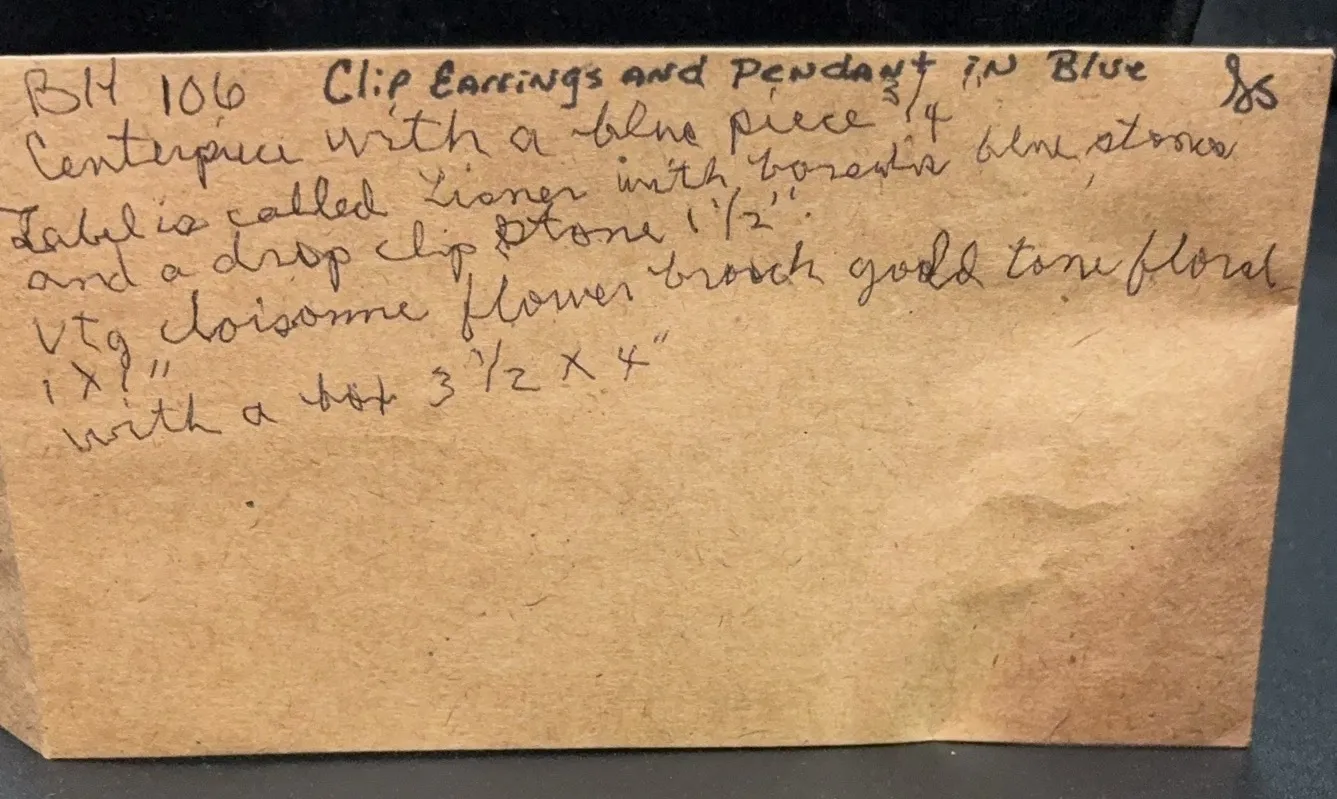 BH 106 Clip Earrings and Pendant in Blue
Centerpiece with a blue piece 3/4
Label is called Lisner with blue stones
and a drop clip stone 1 1/2"
vtg cloisonne flower brooch gold tone floral
1 X 1"
with a box 3 1/2 X 4"